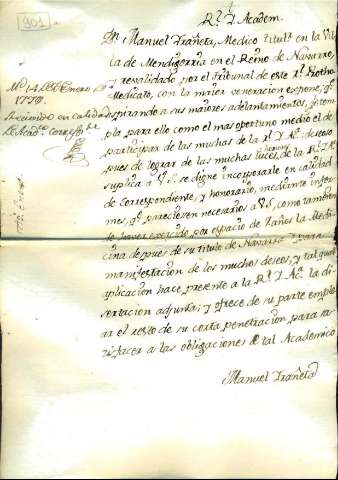 901
Rl. Academ.
Dn. Manuel Irañeta, Medico titulr. en la Vi-
lla de Mendigorria en el Reino de Navarra,
y revalidado por el Tribunal de este Rl. Protho
Medicato, con la maior veneracion expone, qe.
aspirando a sus maiores adelantamientos, contem
pla para ello como el mas oportuno medio el de
participar de las muchas de la Rl. Ac.
pues de lograr de las muchas luces, de la Rl. Ac.
suplica a V.S. se digne incorporarle en calidad
de Correspondiente, y honorario, mediante infor-
mes, qe. pareciesen necesarios a V.S., como tambien
de haver exercido por espacio de años la Medi-
cina despues de su titulo de Navarra. Y para
manifestacion de los muchos deseos, y tal qual
aplicacion hace presente a la Rl. Ac. la di-
sertacion adjunta; y ofrece de su parte emple-
ar el resto de su corta penetracion para sa-
tisfacer a las obligaciones de tal Academico
Manuel Irañeta
Md. 14 de Enero de
1779.
Admitido en calidad
de Acadco. correspte.